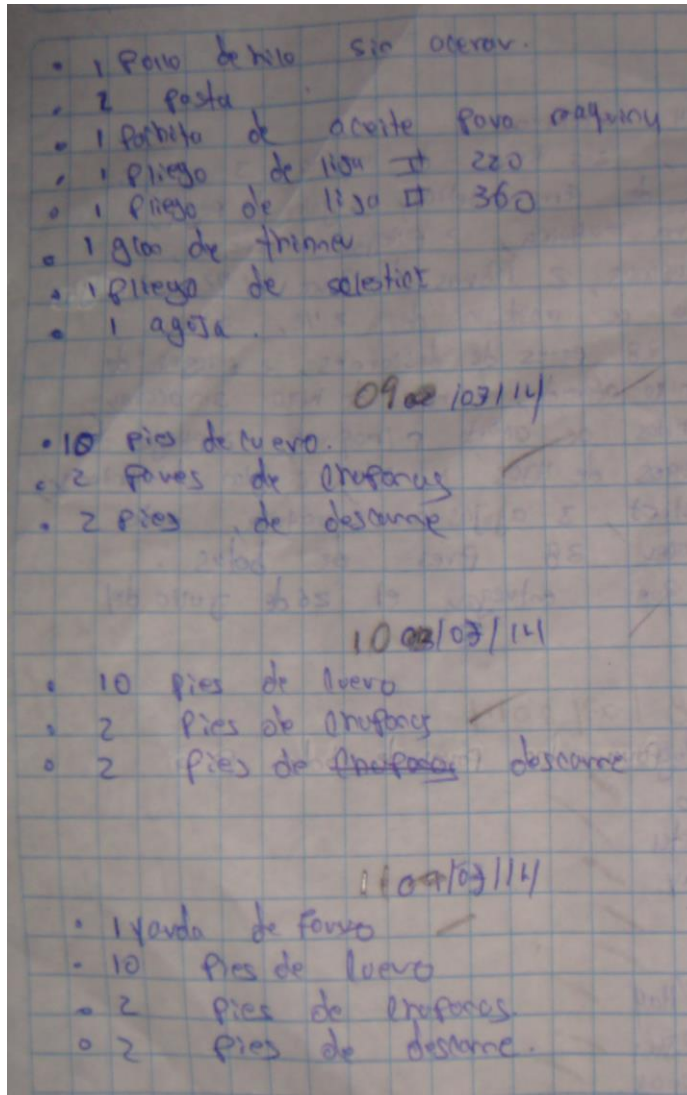 • 1 Rollo de hilo sin acerar.
• 2 pasta
• 1 Potsito de aceite para maquina
• 1 Pliego de lija # 220
• 1 Pliego de lija # 360
• 1 glao de thinner
• 1 Pliego de selestict
• 1 aguja.
09 /03/14
• 10 pies de cuero.
• 2 Pares de chuparus
• 2 Pies de descarne
10 /03/14
• 10 Pies de cuero
• 2 Pies de chuparus
• 2 Pies de descarne
11 /03/14
• 1 yarda de Forro
• 10 Pies de cuero
• 2 Pies de chuparus.
• 2 Pies de descarne.